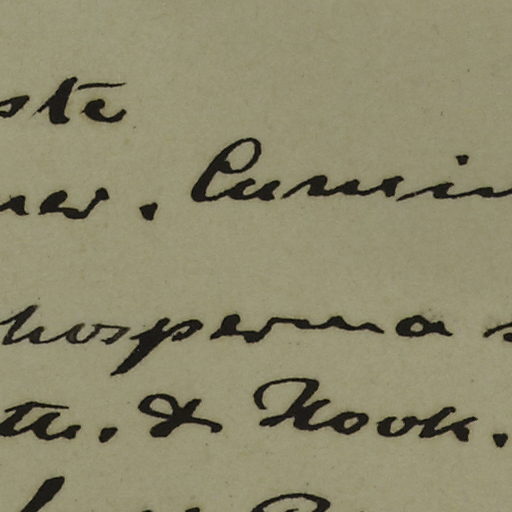 ste
ner. Cunnin
hosperma s
th. & Hook.